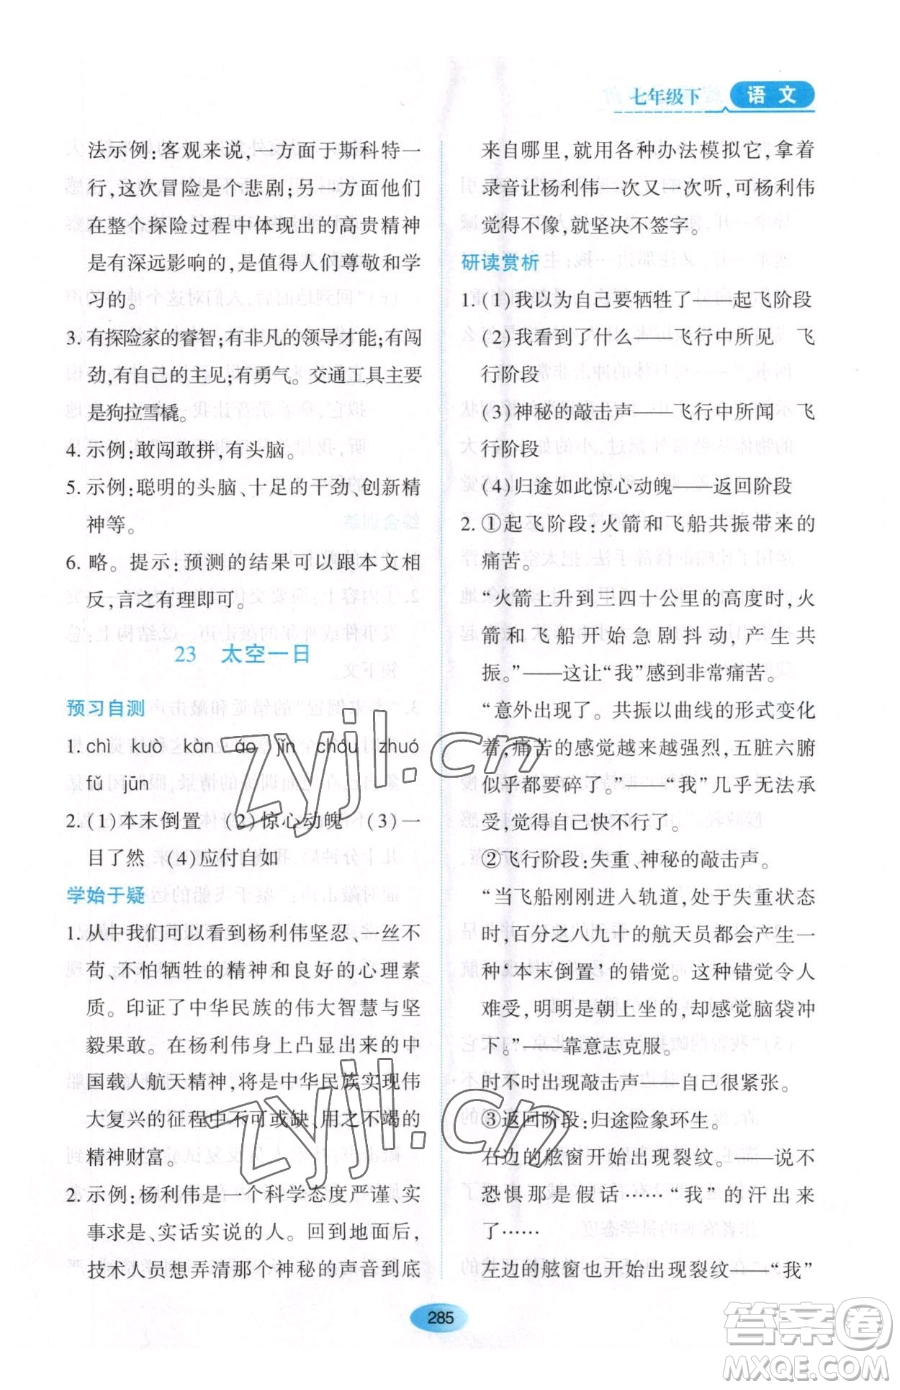 七年级下 语文
法示例:客观来说,一方面于斯科特一
行,这次冒险是个悲剧;另一方面他们
在整个探险过程中体现出的高贵精神
是有深远影响的,是值得人们尊敬和学
习的。
3. 有探险家的睿智;有非凡的领导才能;有闯
劲,有自己的主见;有勇气。交通工具主要
是狗拉雪橇。
4. 示例:敢闯敢拼,有头脑。
5. 示例:聪明的头脑、十足的干劲、创新精
神等。
6. 略。提示:预测的结果可以跟本文相
反,言之有理即可。
23 太空一日
预习自测
1. chì kuò kàn do jìn chóu zhuó
fǔ jūn
2. (1)本末倒置 (2)惊心动魄 (3)一
目了然 (4)应付自如
学始于疑
1. 从中我们可以看到杨利伟坚忍、一丝不
苟、不怕牺牲的精神和良好的心理素
质。印证了中华民族的伟大智慧与坚
毅果敢。在杨利伟身上凸显出来的中
国载人航天精神,将是中华民族实现伟
大复兴的征程中不可或缺、用之不竭的
精神财富。
2. 示例:杨利伟是一个科学态度严谨、实
事求是、实话实说的人。回到地面后,
技术人员想弄清那个神秘的声音到底
来自哪里,就用各种办法模拟它,拿着
录音让杨利伟一次又一次听,可杨利伟
觉得不像,就坚决不签字。
研读赏析
1. (1)我以为自己要牺牲了——起飞阶段
(2)我看到了什么——飞行中所见 飞
行阶段
(3)神秘的敲击声——飞行中所闻 飞
行阶段
(4)归途如此惊心动魄——返回阶段
2. ①起飞阶段:火箭和飞船共振带来的
痛苦。
“火箭上升到三四十公里的高度时,
火箭和飞船开始急剧抖动,产生共
振。”——这让“我”感到非常痛苦。
“意外出现了。共振以曲线的形式变化
着,痛苦的感觉越来越强烈,五脏六腑
似乎都要碎了。”——“我”几乎无法承
受,觉得自己快不行了。
②飞行阶段:失重、神秘的敲击声。
“当飞船刚刚进入轨道,处于失重状态
时,百分之八九十的航天员都会产生一
种“本末倒置”的错觉。这种错觉令人
难受,明明是朝上坐的,却感觉脑袋冲
下。”——靠意志克服。
时不时出现敲击声——自己很紧张。
③返回阶段:归途险象环生。
右边的舷窗开始出现裂纹。——说不
恐惧那是假话……“我”的汗出来
了……
左边的舷窗也开始出现裂纹——“我”
285
zyjl.cn
zyjl.cn
答案圈
MXQE.COM